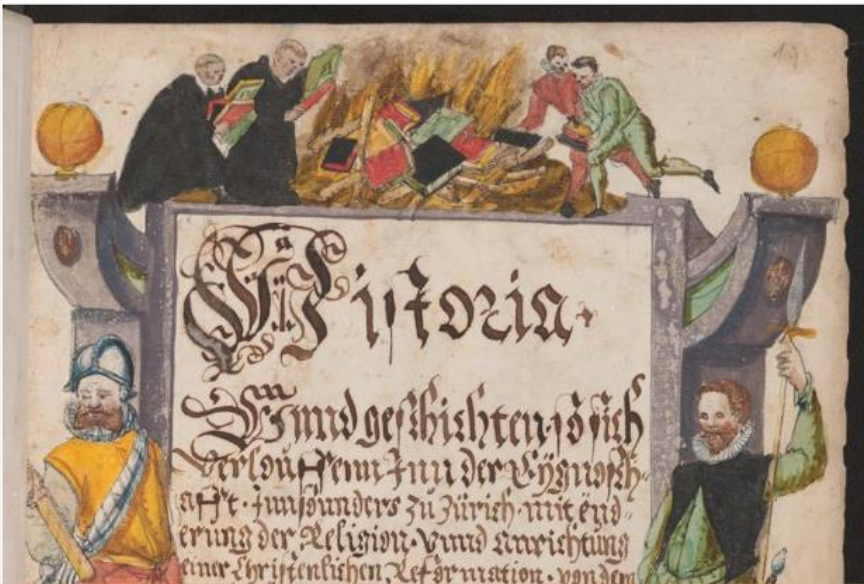 Historia.
Vnnd geschichten, so sich
verlouffenn Inn der Eÿgnosch=
afft. Innsunders zů Zürich. mit end=
erung der Religion. Vnnd anrichtung
einer Christenlichen Reformation. von dem